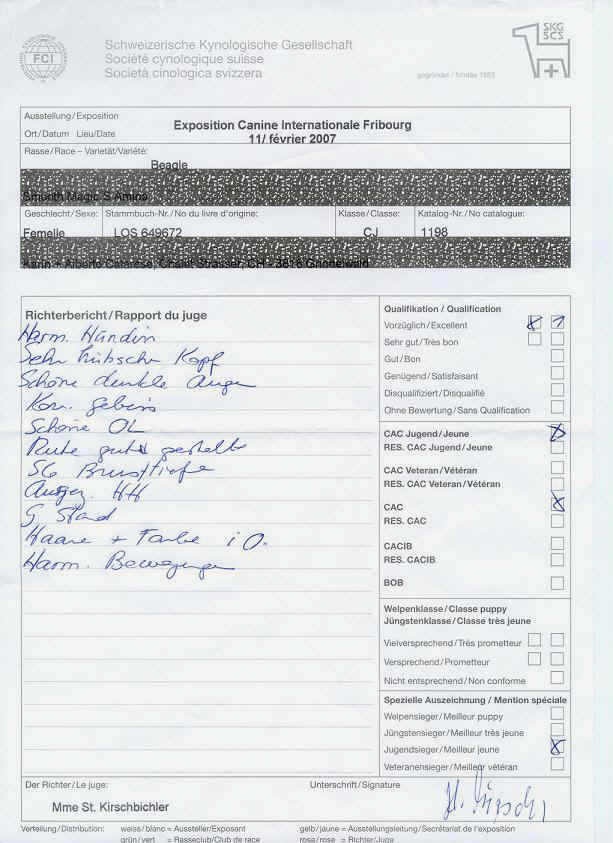 FCI
Schweizerische Kynologische Gesellschaft
Société cynologique suisse
Società cinologica svizzera
gegründet / fondée 1883
SKG
SCS
Ausstellung/Exposition
Ort/Datum Lieu/Date
Exposition Canine Internationale Fribourg
11/ février 2007
Rasse/Race – Varietät/Variété:
Beagle
Smorith Magic S Amina
Geschlecht/Sexe: Stammbuch-Nr./No du livre d'origine: Klasse/Classe: Katalog-Nr./No catalogue:
Femelle LOS 649672 CJ 1198
Karin + Alberto Catarese, Chalet Strasser, CH - 3818 Grindelwald
Richterbericht/Rapport du juge
Harm. Hündin
Sehr hübscher Kopf
Schöne dunkle Augen
Korr. Gebiss
Schöne OL
Rute gut gestellt
SG Brusttiefe
Ausgez. HH
G Stand
Haare + Farbe i O.
Harm. Bewegungen
Qualifikation / Qualification
Vorzüglich/Excellent x 1
Sehr gut/Très bon
Gut/Bon
Genügend/Satisfaisant
Disqualifiziert/Disqualifié
Ohne Bewertung/Sans Qualification
CAC Jugend/Jeune x
RES. CAC Jugend/Jeune
CAC Veteran/Vétéran
RES. CAC Veteran/Vétéran
CAC x
RES. CAC
CACIB
RES. CACIB
BOB
Welpenklasse/Classe puppy
Jüngstenklasse/Classe très jeune
Vielversprechend/Très prometteur
Versprechend/Prometteur
Nicht entsprechend/Non conforme
Spezielle Auszeichnung / Mention spéciale
Welpensieger/Meilleur puppy
Jüngstensieger/Meilleur très jeune
Jugendsieger/Meilleur jeune x
Veteranensieger/Meilleur vétéran
Der Richter/Le juge: Unterschrift/Signature
Mme St. Kirschbichler
Verteilung/Distribution: weiss/blanc = Aussteller/Exposant gelb/jaune = Ausstellungsleitung/Secrétariat de l'exposition
grün/vert = Rasseclub/Club de race rosa/rose = Richter/Juge